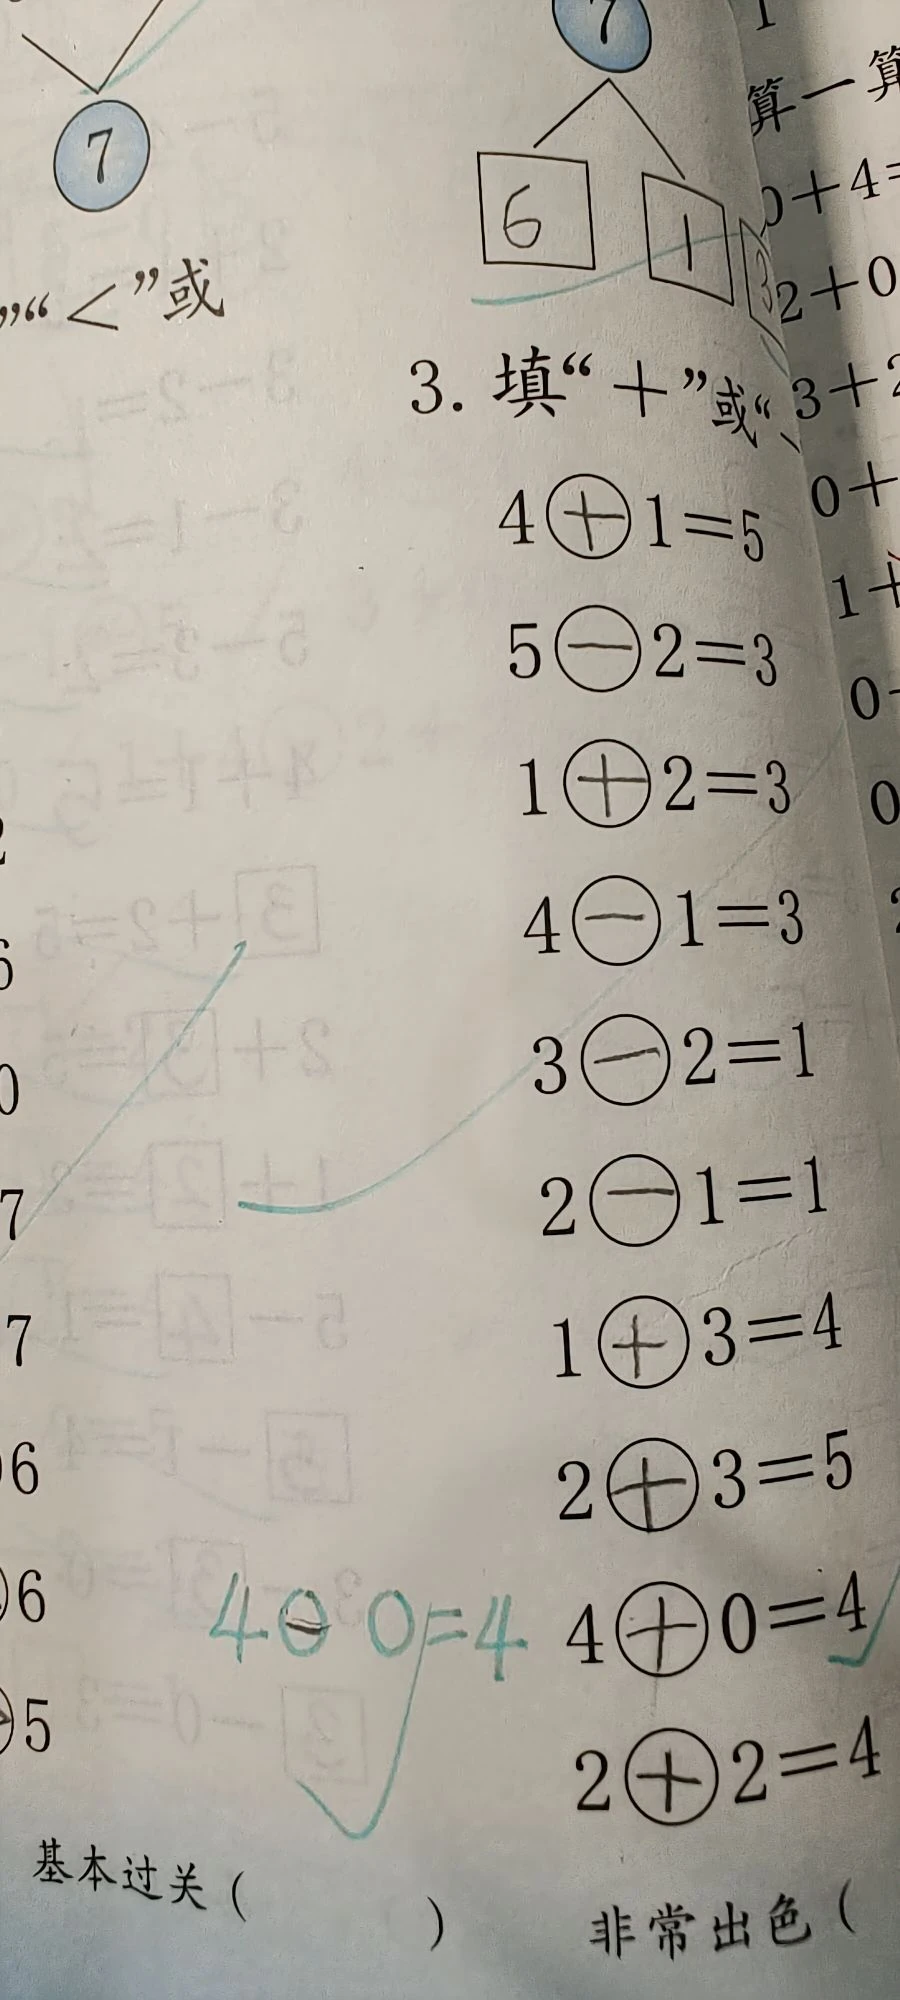 7
”“＜”或
6
0
7
7
6
6
5
基本过关（ ）
7
6 1
3. 填“＋”或“
4⊕1=5
5⊖2=3
1⊕2=3
4⊖1=3
3⊖2=1
2⊖1=1
1⊕3=4
2⊕3=5
4⊖0=4
4⊕0=4
2⊕2=4
非常出色（
算一算
0+4=
2+0
3+2
0+
1+
0
0